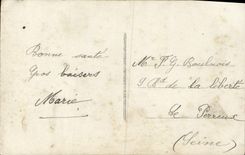 Bonne santé
Gros baisers
Marie
Mr F. G. Boulnois
9 Rt de la liberté
Le Perreux
(Seine)